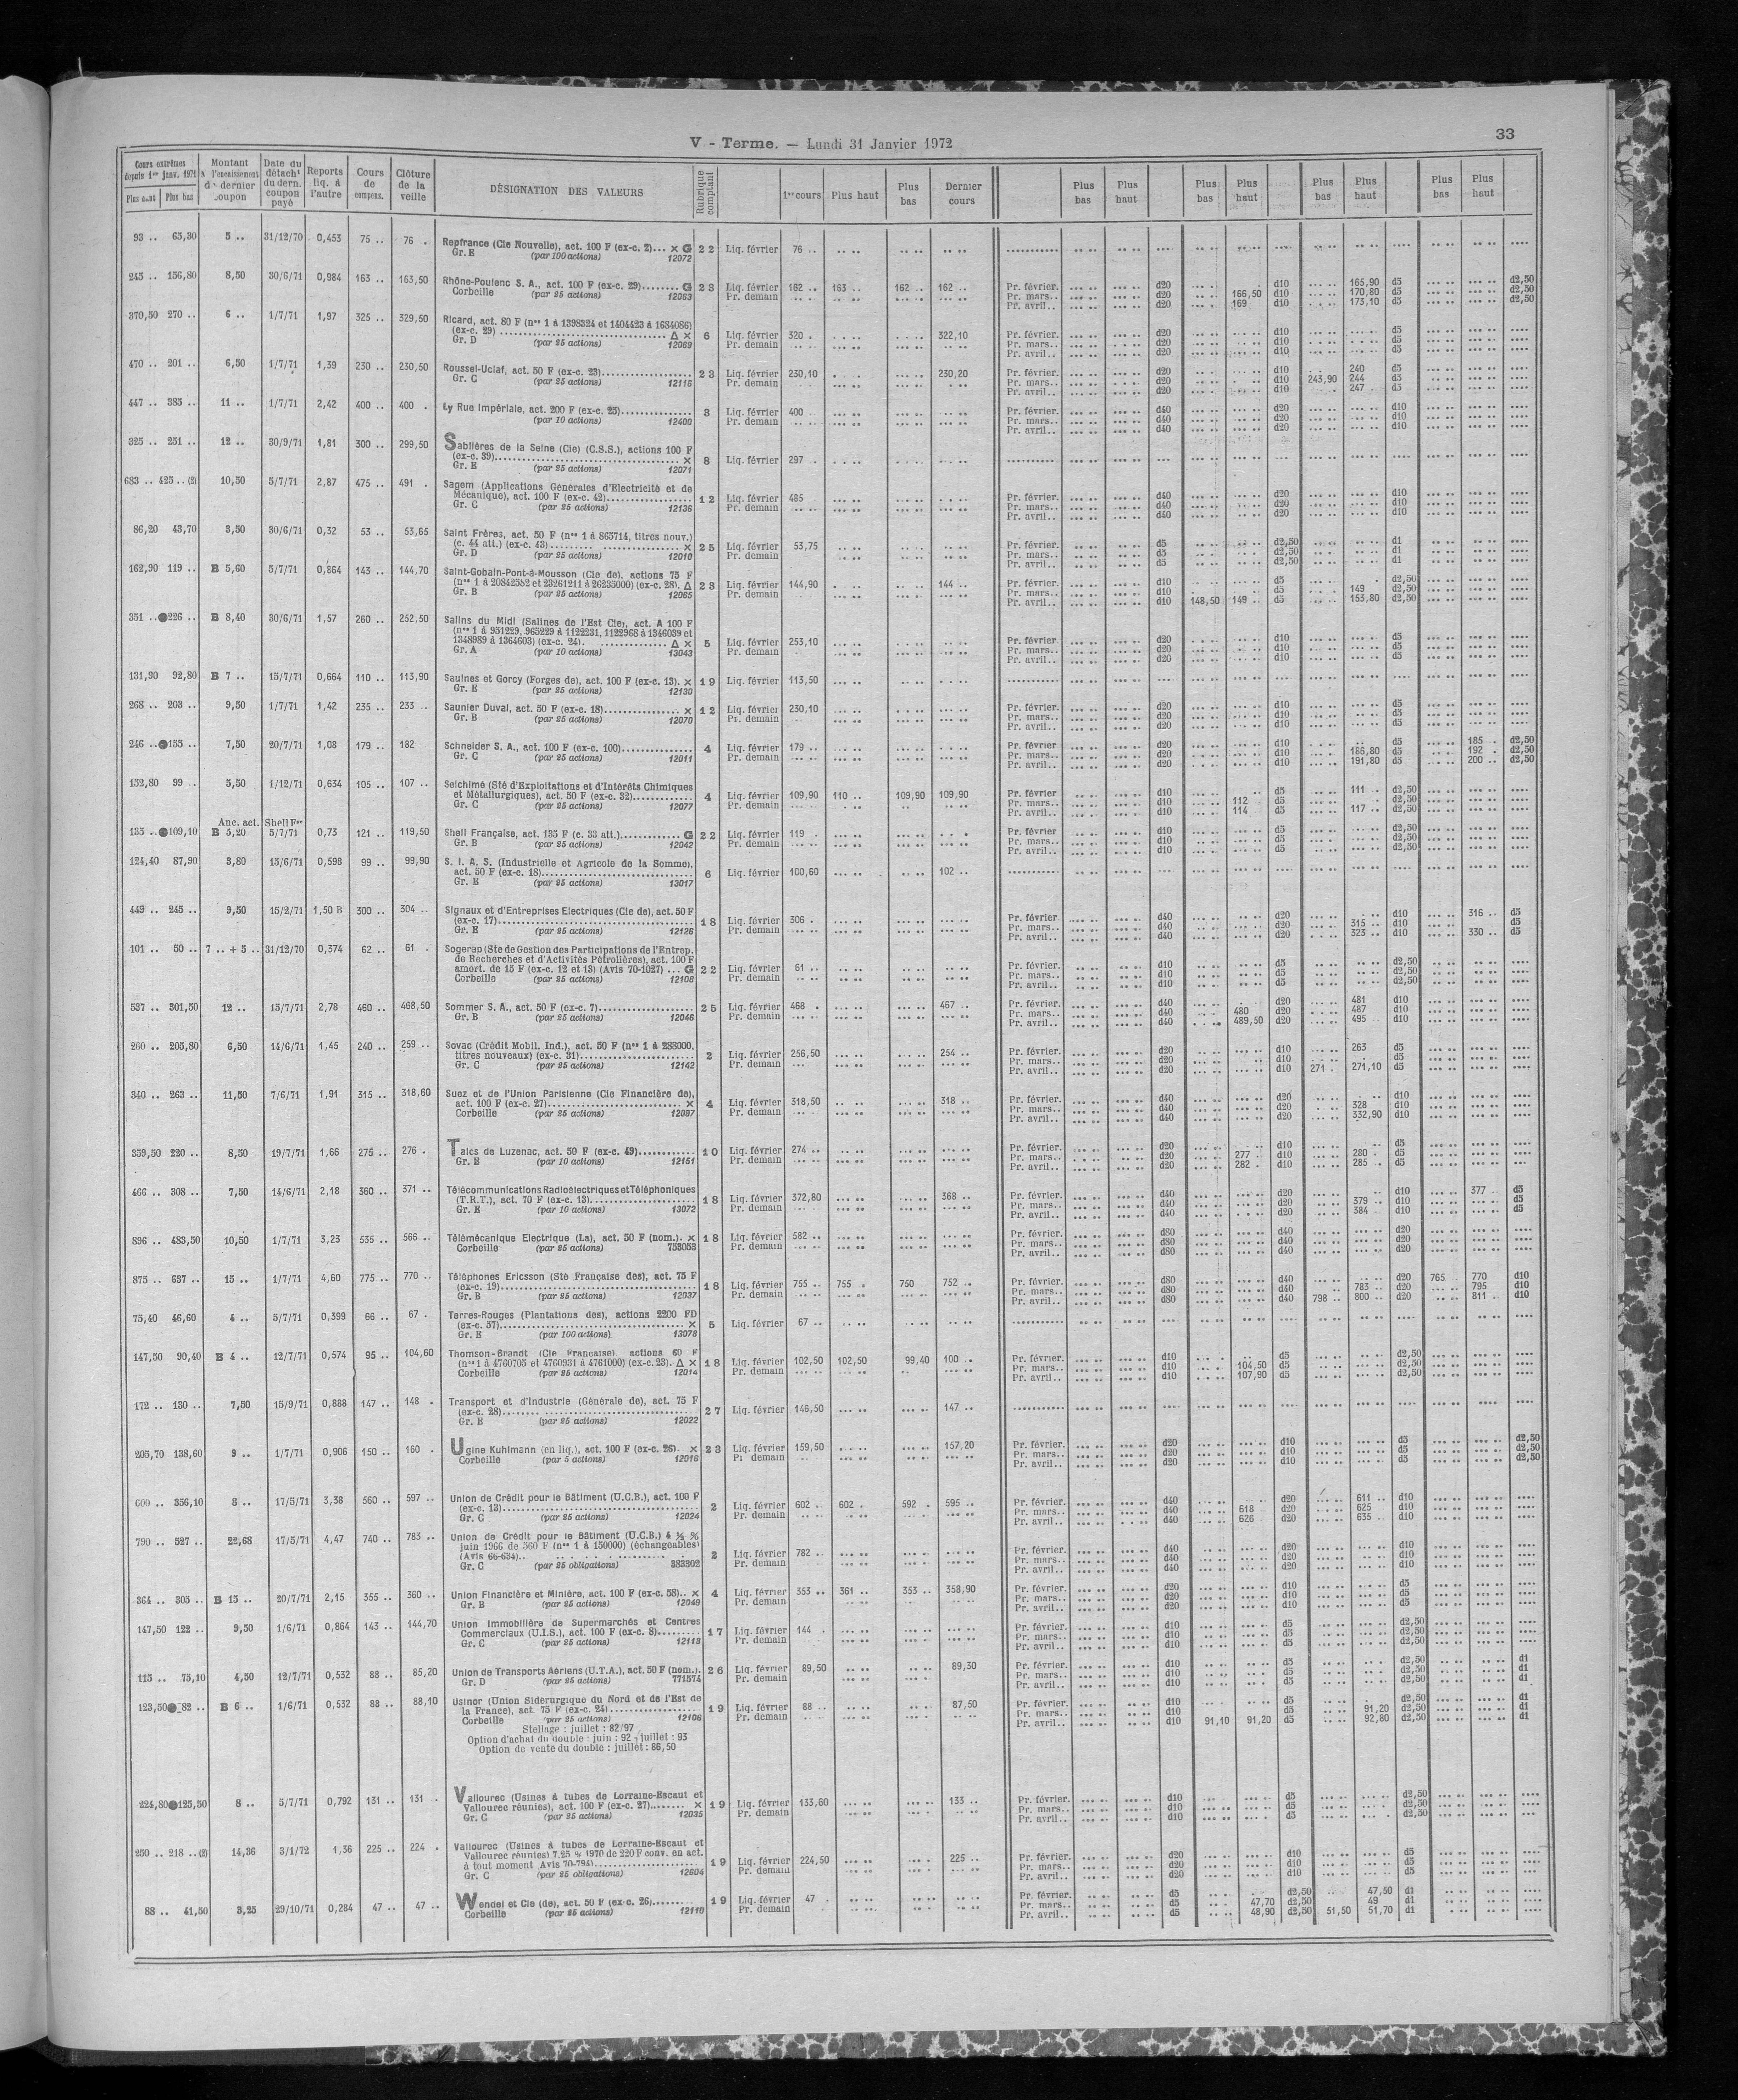 V - Terme. — Lundi 31 Janvier 1972
33
Cours extrêmes depuis 1er janv. 1971 Plus haut Plus bas | Montant à l'encaissement du dernier coupon | Date du détacht du dern. coupon payé | Reports liq. à l'autre | Cours de compens. | Clôture de la veille | DÉSIGNATION DES VALEURS | Rubrique comptant | 1er cours | Plus haut | Plus bas | Dernier cours | Plus bas | Plus haut | Plus bas | Plus haut | Plus bas | Plus haut | Plus bas | Plus haut
93 .. 65,30 5 .. 31/12/70 0,453 75 .. 76 . Repfrance (Cie Nouvelle), act. 100 F (ex-c. 2)... × G 22 Liq. février 76 ..
Gr. E (par 100 actions) 12072
245 .. 156,80 8,50 30/6/71 0,984 163 .. 163,50 Rhône-Poulenc S. A., act. 100 F (ex-c. 29)........ G 23 Liq. février 162 .. 163 .. 162 .. 162 .. Pr. février. d20 d10 165,90 d5 d2,50
Corbeille (par 25 actions) 12063 Pr. demain Pr. mars.. d20 166,50 d10 170,80 d5 d2,50
Pr. avril.. d20 169 d10 173,10 d5 d2,50
370,50 270 .. 6 .. 1/7/71 1,97 325 .. 329,50 Ricard, act. 80 F (nos 1 à 1398324 et 1404423 à 1634086)
(ex-c. 29) ........ Δ × 6 Liq. février 320 . 322,10 Pr. février. d20 d10 d5
Gr. D (par 25 actions) 12069 Pr. demain Pr. mars.. d20 d10 d5
Pr. avril.. d20 d10 d5
470 .. 201 .. 6,50 1/7/71 1,39 230 .. 230,50 Roussel-Uclaf, act. 50 F (ex-c. 23)........ 23 Liq. février 230,10 230,20 Pr. février. d20 d10 240 d5
Gr. C (par 25 actions) 12118 Pr. demain Pr. mars.. d20 d10 243,90 244 d5
Pr. avril.. d20 d10 247 d5
447 .. 385 .. 11 .. 1/7/71 2,42 400 .. 400 . Ly Rue Impériale, act. 200 F (ex-c. 25)........ 3 Liq. février 400 . Pr. février. d40 d20 d10
(par 10 actions) 12400 Pr. demain Pr. mars.. d40 d20 d10
Pr. avril.. d40 d20 d10
325 .. 251 .. 12 .. 30/9/71 1,81 300 .. 299,50 Sablières de la Seine (Cie) (C.S.S.), actions 100 F
(ex-c. 39)........ × 8 Liq. février 297 .
Gr. E (par 25 actions) 12071
683 .. 425 .. (2) 10,50 5/7/71 2,87 475 .. 491 . Sagem (Applications Générales d'Electricité et de
Mécanique), act. 100 F (ex-c. 42)........ 12 Liq. février 485 Pr. février. d40 d20 d10
Gr. C (par 25 actions) 12136 Pr. demain Pr. mars.. d40 d20 d10
Pr. avril.. d40 d20 d10
86,20 43,70 3,50 30/6/71 0,32 53 .. 53,65 Saint Frères, act. 50 F (nos 1 à 865714, titres nouv.)
(c. 44 att.) (ex-c. 43)........ × 25 Liq. février 53,75 Pr. février. d5 d2,50 d1
Gr. D (par 25 actions) 12010 Pr. demain Pr. mars.. d5 d2,50 d1
Pr. avril.. d5 d2,50 d1
162,90 119 .. B 5,60 5/7/71 0,864 143 .. 144,70 Saint-Gobain-Pont-à-Mousson (Cie de), actions 75 F
(nos 1 à 20842582 et 23261211 à 26235000) (ex-c. 28). Δ 23 Liq. février 144,90 144 .. Pr. février. d10 d5 d2,50
Gr. B (par 25 actions) 12065 Pr. demain Pr. mars.. d10 d5 149 d2,50
Pr. avril.. d10 148,50 149 .. d5 153,80 d2,50
351 ..●226 .. B 8,40 30/6/71 1,57 260 .. 252,50 Salins du Midi (Salines de l'Est Cie), act. A 100 F
(nos 1 à 951229, 965229 à 1122231, 1122968 à 1346039 et
1348989 à 1364603) (ex-c. 24). ........ Δ × 5 Liq. février 253,10 Pr. février. d20 d10 d5
Gr. A (par 10 actions) 13043 Pr. demain Pr. mars.. d20 d10 d5
Pr. avril.. d20 d10 d5
131,90 92,80 B 7 .. 15/7/71 0,664 110 .. 113,90 Saulnes et Gorcy (Forges de), act. 100 F (ex-c. 13). × 19 Liq. février 113,50
Gr. E (par 25 actions) 12130
268 .. 203 .. 9,50 1/7/71 1,42 235 .. 233 .. Saunier Duval, act. 50 F (ex-c. 18)........ × 12 Liq. février 230,10 Pr. février. d20 d10 d5
Gr. B (par 25 actions) 12070 Pr. demain Pr. mars.. d20 d10 d5
Pr. avril.. d20 d10 d5
246 ..●155 .. 7,50 20/7/71 1,08 179 .. 182 Schneider S. A., act. 100 F (ex-c. 100)........ 4 Liq. février 179 .. Pr. février d20 d10 d5 185 . d2,50
Gr. C (par 25 actions) 12011 Pr. demain Pr. mars.. d20 d10 186,80 d5 192 . d2,50
Pr. avril.. d20 d10 191,80 d5 200 .. d2,50
152,80 99 .. 5,50 1/12/71 0,634 105 .. 107 .. Seichimé (Sté d'Exploitations et d'Intérêts Chimiques
et Métallurgiques), act. 50 F (ex-c. 32)........ 4 Liq. février 109,90 110 .. 109,90 109,90 Pr. février d10 d5 111 .. d2,50
Gr. C (par 25 actions) 12077 Pr. demain Pr. mars.. d10 112 d5 d2,50
Pr. avril.. d10 114 d5 117 .. d2,50
Anc. act. Shell Fse
135 ..●109,10 B 5,20 5/7/71 0,73 121 .. 119,50 Shell Française, act. 135 F (c. 33 att.)........ G 22 Liq. février 119 . Pr. février d10 d5 d2,50
Gr. B (par 25 actions) 12042 Pr. demain Pr. mars.. d10 d5 d2,50
Pr. avril.. d10 d5 d2,50
124,40 87,90 3,80 15/6/71 0,598 99 .. 99,90 S. I. A. S. (Industrielle et Agricole de la Somme),
act. 50 F (ex-c. 18)........ 6 Liq. février 100,60 102 ..
Gr. E (par 25 actions) 13017
449 .. 245 .. 9,50 15/2/71 1,50 B 300 .. 304 .. Signaux et d'Entreprises Electriques (Cie de), act. 50 F
(ex-c. 17)........ 18 Liq. février 306 . Pr. février d40 d20 d10 316 .. d5
Gr. E (par 25 actions) 12126 Pr. demain Pr. mars.. d40 d20 315 .. d10 d5
Pr. avril.. d40 d20 323 .. d10 330 .. d5
101 .. 50 .. 7 .. + 5 .. 31/12/70 0,374 62 .. 61 . Sogerap (Sté de Gestion des Participations de l'Entrep.
de Recherches et d'Activités Pétrolières), act. 100 F
amort. de 15 F (ex-c. 12 et 13) (Avis 70-1027) ... G 22 Liq. février 61 .. Pr. février. d10 d5 d2,50
Corbeille (par 25 actions) 12108 Pr. demain Pr. mars.. d10 d5 d2,50
Pr. avril.. d10 d5 d2,50
537 .. 301,50 12 .. 15/7/71 2,78 460 .. 468,50 Sommer S. A., act. 50 F (ex-c. 7)........ 25 Liq. février 468 . 467 .. Pr. février. d40 d20 481 d10
Gr. B (par 25 actions) 12046 Pr. demain Pr. mars.. d40 480 d20 487 d10
Pr. avril.. d40 489,50 d20 495 d10
260 .. 205,80 6,50 14/6/71 1,45 240 .. 259 .. Sovac (Crédit Mobil. Ind.), act. 50 F (nos 1 à 288000,
titres nouveaux) (ex-c. 31)........ 2 Liq. février 256,50 254 .. Pr. février. d20 d10 263 d5
Gr. C (par 25 actions) 12142 Pr. demain Pr. mars.. d20 d10 d5
Pr. avril.. d20 d10 271 . 271,10 d5
340 .. 263 .. 11,50 7/6/71 1,91 315 .. 318,60 Suez et de l'Union Parisienne (Cie Financière de),
act. 100 F (ex-c. 27)........ × 4 Liq. février 318,50 318 .. Pr. février. d40 d20 d10
Corbeille (par 25 actions) 12097 Pr. demain Pr. mars.. d40 d20 328 d10
Pr. avril.. d40 d20 332,90 d10
339,50 220 .. 8,50 19/7/71 1,66 275 .. 276 . Talcs de Luzenac, act. 50 F (ex-c. 49)........ 10 Liq. février 274 .. Pr. février. d20 d10 d5
Gr. E (par 10 actions) 12151 Pr. demain Pr. mars.. d20 277 .. d10 280 . d5
Pr. avril.. d20 282 . d10 285 .. d5
466 .. 308 .. 7,50 14/6/71 2,18 360 .. 371 .. Télécommunications Radioélectriques et Téléphoniques
(T.R.T.), act. 70 F (ex-c. 13)........ 18 Liq. février 372,80 368 .. Pr. février. d40 d20 d10 377 d5
Gr. E (par 10 actions) 13072 Pr. demain Pr. mars.. d40 d20 379 .. d10 d5
Pr. avril.. d40 d20 384 .. d10 d5
896 .. 483,50 10,50 1/7/71 3,23 535 .. 566 .. Télémécanique Electrique (La), act. 50 F (nom.). × 18 Liq. février 582 .. Pr. février. d80 d40 d20
Corbeille (par 25 actions) 753053 Pr. demain Pr. mars.. d80 d40 d20
Pr. avril.. d80 d40 d20
875 .. 637 .. 15 .. 1/7/71 4,60 775 .. 770 .. Téléphones Ericsson (Sté Française des), act. 75 F
(ex-c. 19)........ 18 Liq. février 755 .. 755 . 750 752 .. Pr. février. d80 d40 d20 765 770 d10
Gr. B (par 25 actions) 12037 Pr. demain Pr. mars.. d80 d40 783 .. d20 795 d10
Pr. avril.. d80 d40 798 .. 800 .. d20 811 . d10
75,40 46,60 4 .. 5/7/71 0,399 66 .. 67 . Terres-Rouges (Plantations des), actions 2200 FD
(ex-c. 57)........ × 5 Liq. février 67 ..
Gr. E (par 100 actions) 13078
147,50 90,40 B 4 .. 12/7/71 0,574 95 .. 104,60 Thomson-Brandt (Cie Française), actions 60 F
(nos 1 à 4760705 et 4760931 à 4761000) (ex-c. 23). Δ × 18 Liq. février 102,50 102,50 99,40 100 .. Pr. février. d10 d5 d2,50
Corbeille (par 25 actions) 12014 Pr. demain Pr. mars.. d10 104,50 d5 d2,50
Pr. avril.. d10 107,90 d5 d2,50
172 .. 130 .. 7,50 15/9/71 0,888 147 .. 148 . Transport et d'Industrie (Générale de), act. 75 F
(ex-c. 28)........ 27 Liq. février 146,50 147 ..
Gr. E (par 25 actions) 12022
205,70 138,60 9 .. 1/7/71 0,906 150 .. 160 . Ugine Kuhlmann (en liq.), act. 100 F (ex-c. 26). × 23 Liq. février 159,50 157,20 Pr. février. d20 d10 d5 d2,50
Corbeille (par 5 actions) 12016 Pr demain Pr. mars.. d20 d10 d5 d2,50
Pr. avril.. d20 d10 d5 d2,50
600 .. 356,10 8 .. 17/5/71 3,38 560 .. 597 .. Union de Crédit pour le Bâtiment (U.C.B.), act. 100 F
(ex-c. 13)........ 2 Liq. février 602 . 602 . 592 . 595 .. Pr. février. d40 d20 611 .. d10
Gr. C (par 25 actions) 12024 Pr. demain Pr. mars.. d40 618 d20 625 . d10
Pr. avril.. d40 626 d20 635 .. d10
790 .. 527 .. 22,68 17/5/71 4,47 740 .. 783 .. Union de Crédit pour le Bâtiment (U.C.B.) 4 ½ %
juin 1966 de 560 F (nos 1 à 150000) (échangeables)
(Avis 66-634).. 2 Liq. février 782 .. Pr. février. d40 d20 d10
Gr. C (par 25 obligations) 383302 Pr. demain Pr. mars.. d40 d20 d10
Pr. avril.. d40 d20 d10
364 .. 305 .. B 15 .. 20/7/71 2,15 355 .. 360 .. Union Financière et Minière, act. 100 F (ex-c. 58).. × 4 Liq. février 353 .. 361 .. 353 .. 358,90 Pr. février. d20 d10 d5
Gr. B (par 25 actions) 12049 Pr. demain Pr. mars.. d20 d10 d5
Pr. avril.. d20 d10 d5
147,50 122 .. 9,50 1/6/71 0,864 143 .. 144,70 Union Immobilière de Supermarchés et Centres
Commerciaux (U.I.S.), act. 100 F (ex-c. 8)........ 17 Liq. février 144 . Pr. février. d10 d5 d2,50
Gr. C (par 25 actions) 12113 Pr. demain Pr. mars.. d10 d5 d2,50
Pr. avril.. d10 d5 d2,50
115 .. 75,10 4,50 12/7/71 0,532 88 .. 85,20 Union de Transports Aériens (U.T.A.), act. 50 F (nom.). 26 Liq. février 89,50 89,30 Pr. février. d10 d5 d2,50 d1
Gr. D (par 25 actions) 771574 Pr. demain Pr. mars.. d10 d5 d2,50 d1
Pr. avril.. d10 d5 d2,50 d1
123,50● 82 .. B 6 .. 1/6/71 0,532 88 .. 88,10 Usinor (Union Sidérurgique du Nord et de l'Est de
la France), act. 75 F (ex-c. 24)........ 19 Liq. février 88 .. 87,50 Pr. février. d10 d5 d2,50 d1
Corbeille (par 25 actions) 12106 Pr. demain Pr. mars.. d10 d5 91,20 d2,50 d1
Stellage : juillet : 82/97 Pr. avril.. d10 91,10 91,20 d5 92,80 d2,50 d1
Option d'achat du double : juin : 92 - juillet : 93
Option de vente du double : juillet : 86,50
224,80●125,50 8 .. 5/7/71 0,792 131 .. 131 . Vallourec (Usines à tubes de Lorraine-Escaut et
Vallourec réunies), act. 100 F (ex-c. 27)........ × 19 Liq. février 133,60 133 .. Pr. février. d10 d5 d2,50
Gr. C (par 25 actions) 12035 Pr. demain Pr. mars.. d10 d5 d2,50
Pr. avril.. d10 d5 d2,50
250 .. 218 .. (2) 14,36 3/1/72 1,36 225 .. 224 . Vallourec (Usines à tubes de Lorraine-Escaut et
Vallourec réunies) 7,25 % 1970 de 220 F conv. en act.
à tout moment Avis 70-794)........ 19 Liq. février 224,50 225 .. Pr. février. d20 d10 d5
Gr. C (par 25 obligations) 12604 Pr. demain Pr. mars.. d20 d10 d5
Pr. avril.. d20 d10 d5
88 .. 41,50 3,25 29/10/71 0,284 47 .. 47 .. Wendel et Cie (de), act. 50 F (ex-c. 26)........ 19 Liq. février 47 . Pr. février. d5 d2,50 47,50 d1
Corbeille (par 25 actions) 12110 Pr. demain Pr. mars.. d5 47,70 d2,50 49 d1
Pr. avril.. d5 48,90 d2,50 51,50 51,70 d1